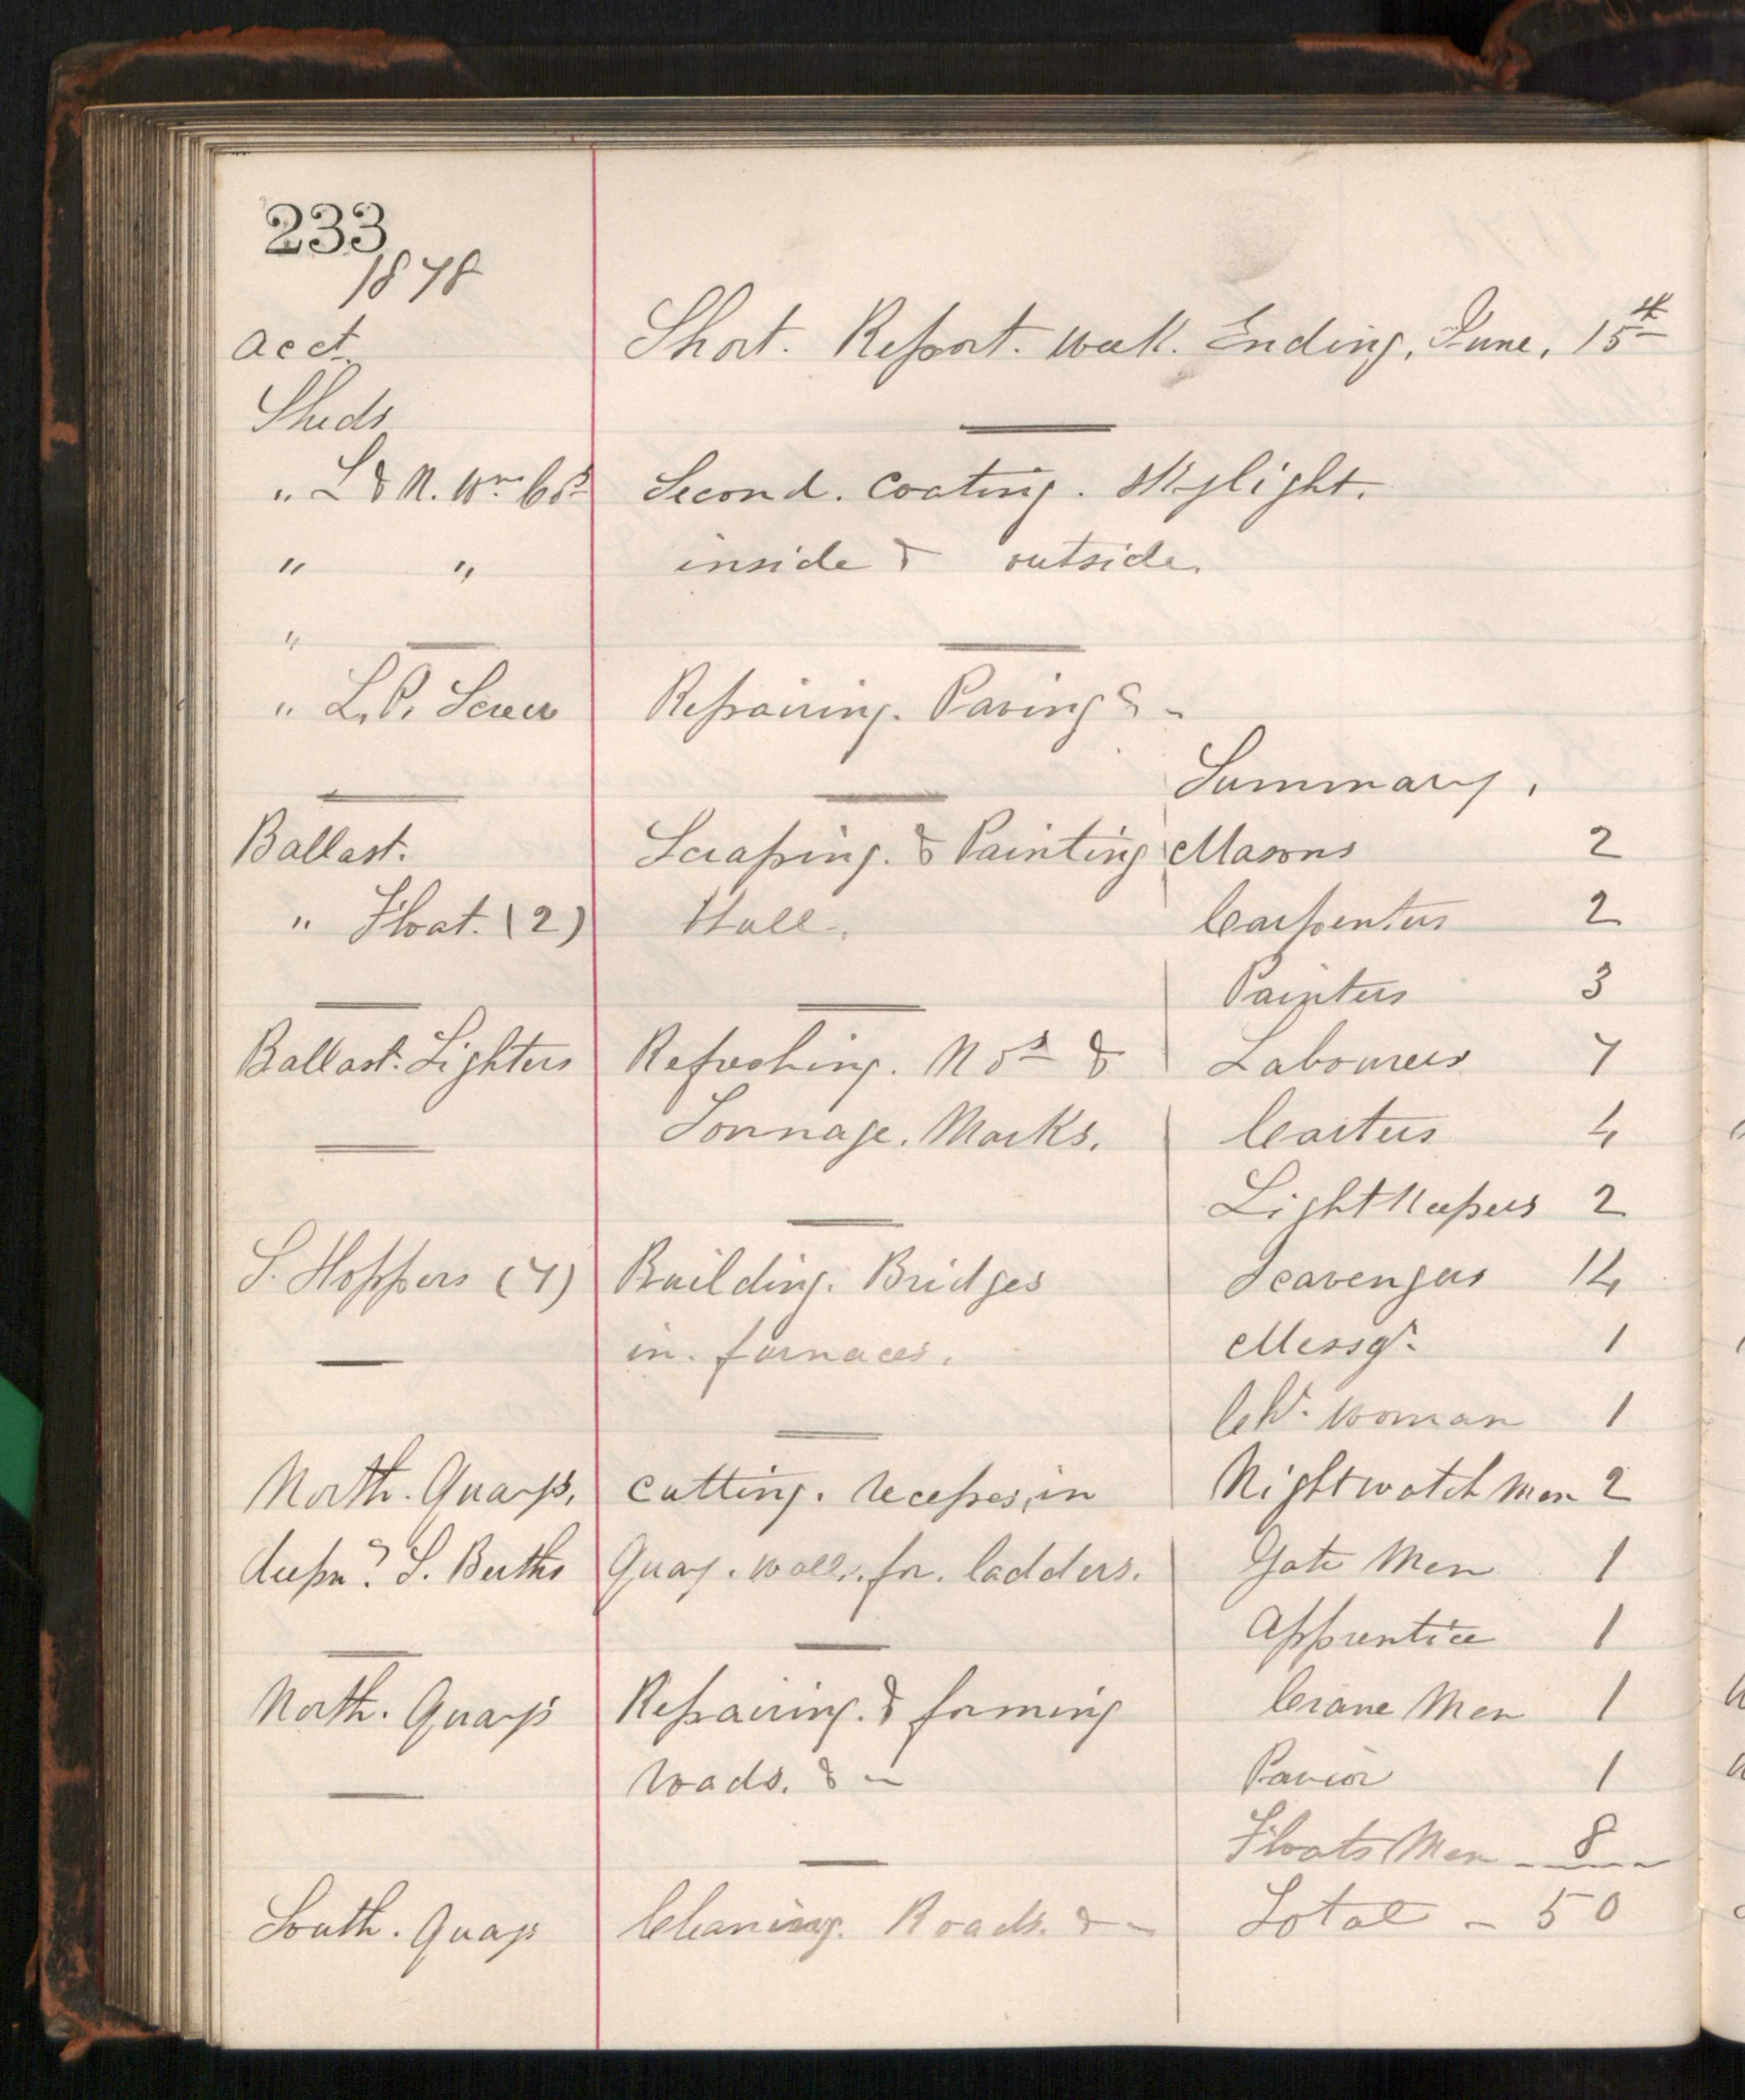 233
1878
acct. Short. Report. Week. Ending, June, 15th
Sheds
" L & N. Wn Cos Second. Coating. Skylight.
" " inside & outside.
"
" L. P. Screw Repairing. Paving & -
Summary.
Ballast. Scraping. & Painting Masons 2
" Float. (2) Hull. Carpenters 2
Painters 3
Ballast. Lighters Refreshing. Nos & Labourers 7
Tonnage. Marks. Carters 4
Light Keepers 2
S. Hoppers (7) Building. Bridges Scavengers 14
in. furnaces. Messgr. 1
Chr. Woman 1
North. Quays, Cutting. recesses, in Nightwatch Men 2
deepn? S. Berths Quay. wall. for. ladders. Gate Men 1
Apprentice 1
North. Quays Repairing. & forming Crane Men 1
roads. & - Pavior 1
Floats Men 8
South. Quays Cleaning. Roads. & - Total - 50